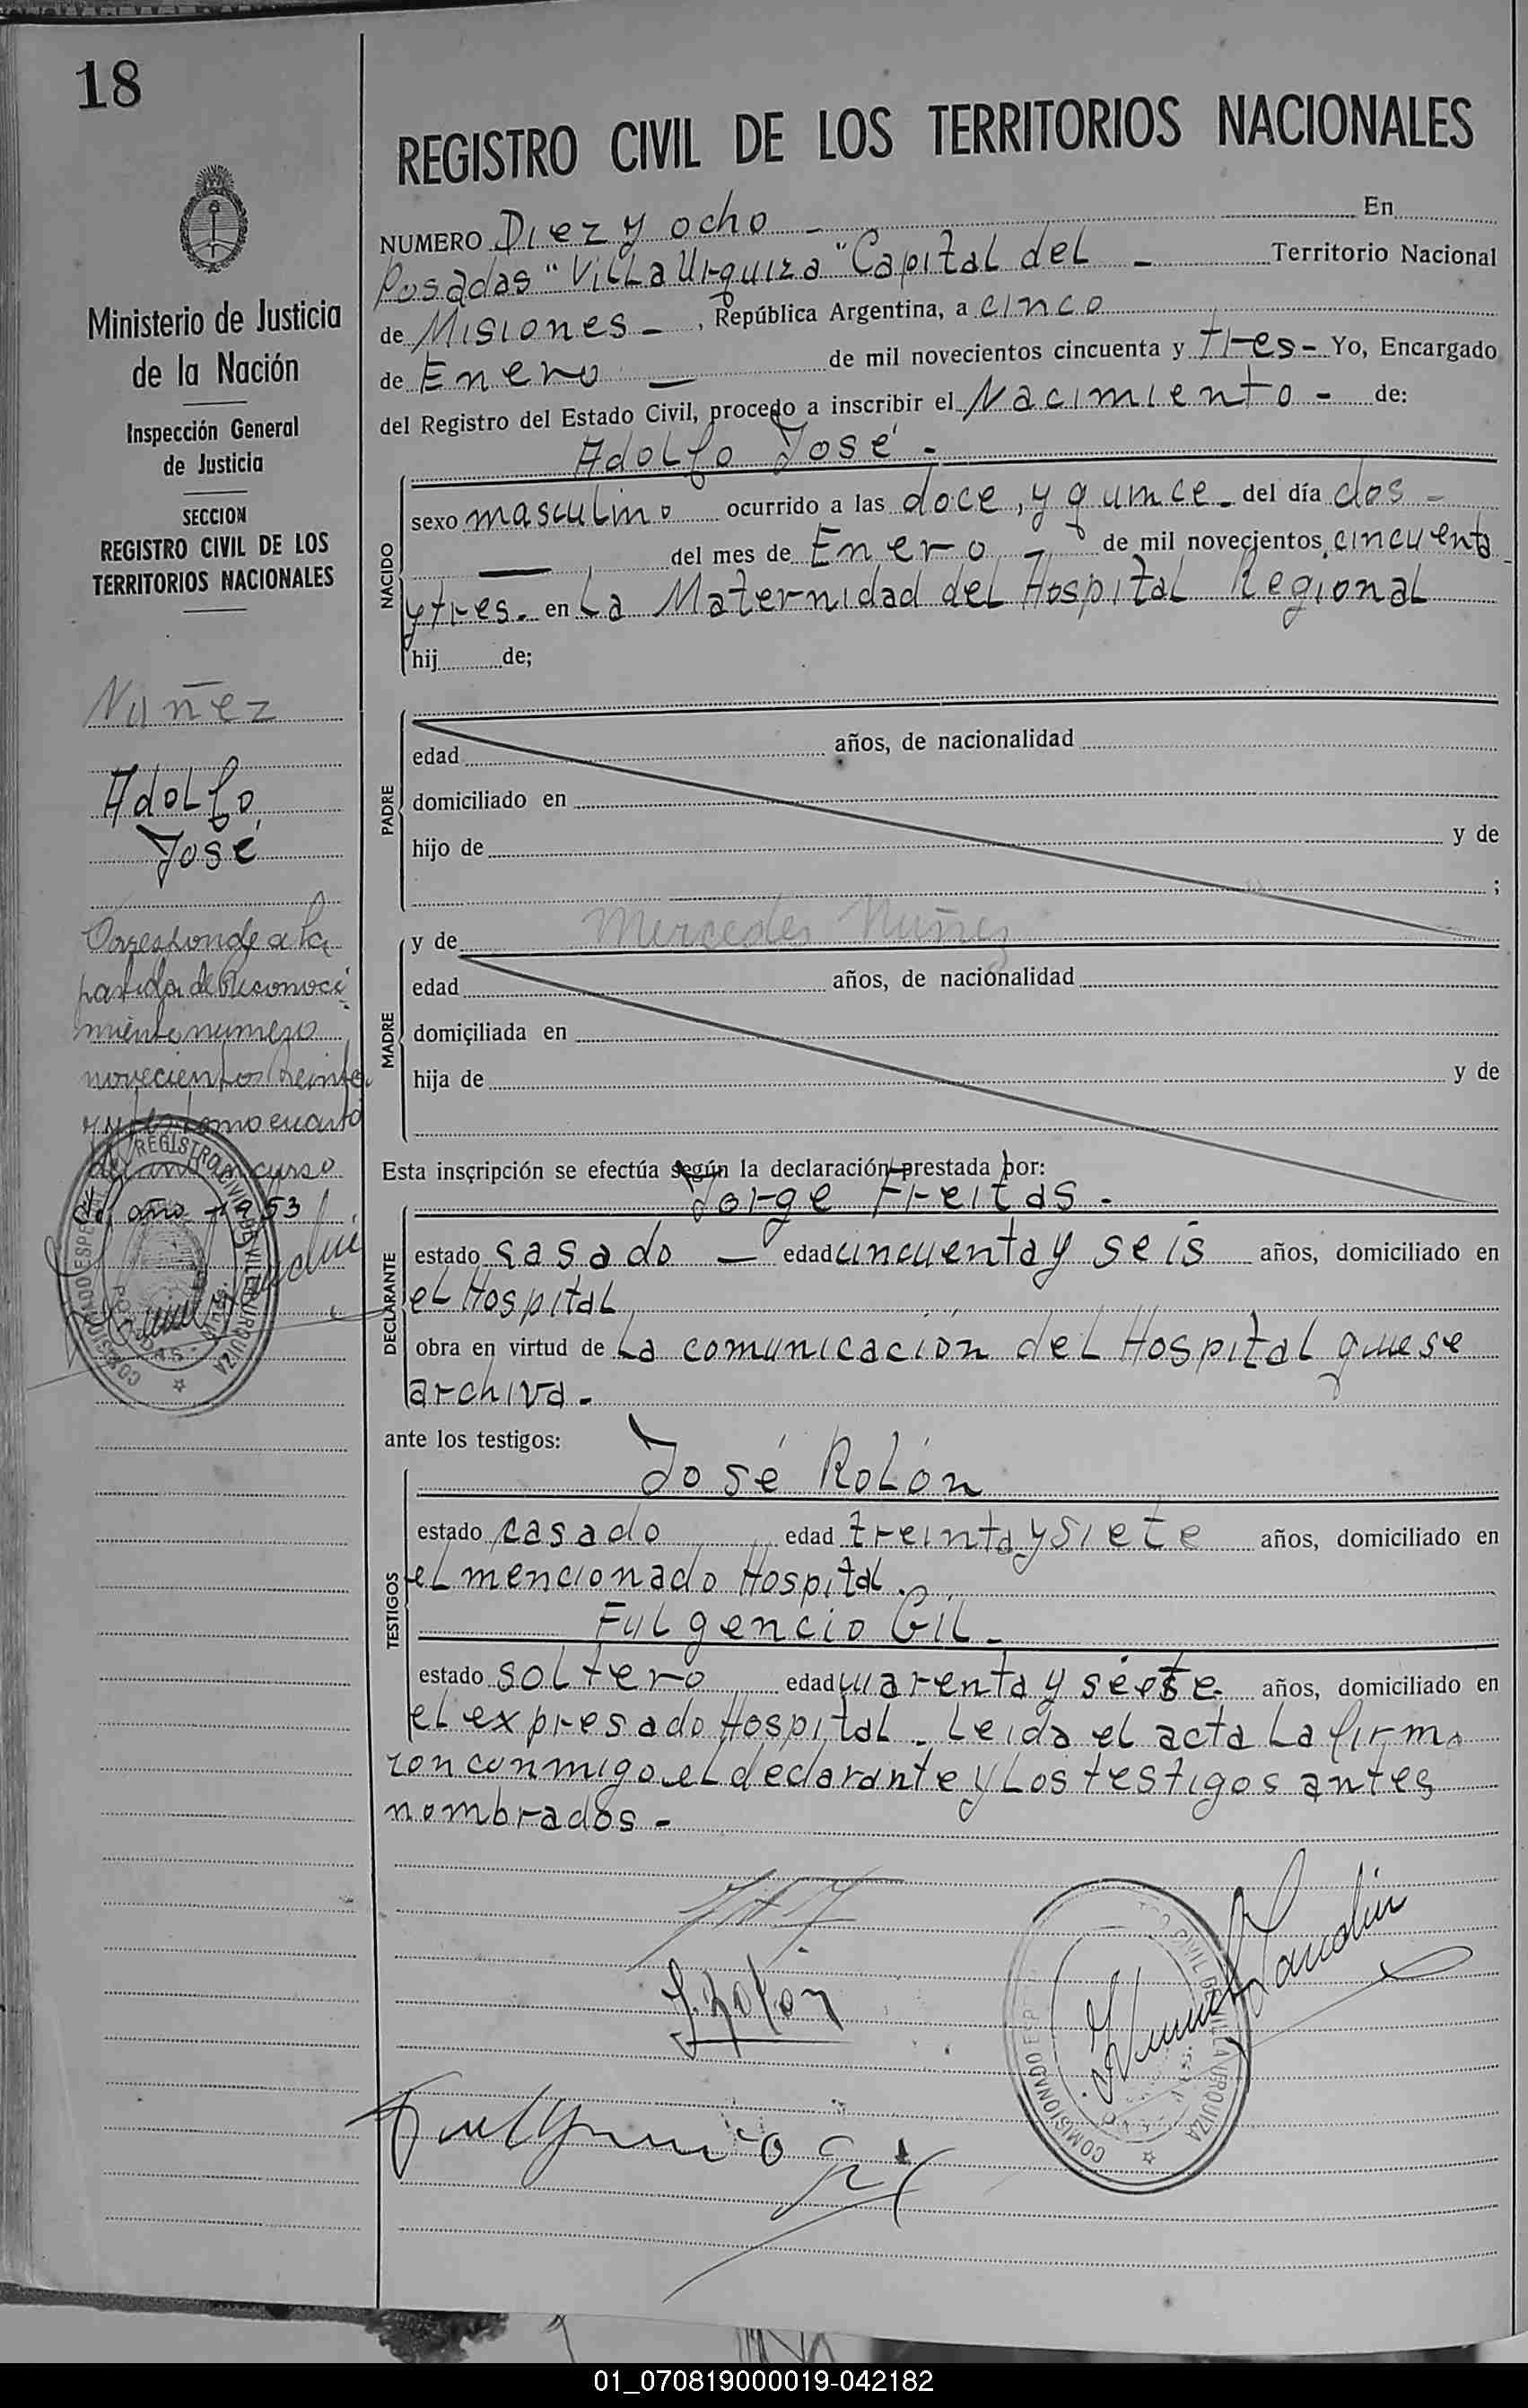 18
Ministerio de Justicia
de la Nación
Inspección General
de Justicia
SECCION
REGISTRO CIVIL DE LOS
TERRITORIOS NACIONALES
Nuñez
Adolfo
José
Corresponde a la
partida de Reconoci
miento numero
novecientos treinta
y tres tomo cuarto
del curso
del año 1953
REGISTRO CIVIL DE LOS TERRITORIOS NACIONALES
NUMERO Diez y ocho - En
Posadas "Villa Urquiza" Capital del - Territorio Nacional
de Misiones - , República Argentina, a cinco
de Enero — de mil novecientos cincuenta y tres - Yo, Encargado
del Registro del Estado Civil, procedo a inscribir el Nacimiento - de:
Adolfo José -
NACIDO
sexo masculino ocurrido a las doce, y quince - del día dos -
— del mes de Enero - de mil novecientos cincuenta
y tres - en La Maternidad del Hospital Regional
hij de;
PADRE
edad años, de nacionalidad
domiciliado en
hijo de y de
;
MADRE
y de Mercedes Nuñez
edad años, de nacionalidad
domiciliada en
hija de y de
Esta inscripción se efectúa según la declaración prestada por:
Jorge Freitas -
DECLARANTE
estado casado — edad cincuenta y seis años, domiciliado en
el Hospital
obra en virtud de La comunicación del Hospital que se
archiva -
ante los testigos:
José Rolón
TESTIGOS
estado casado edad treinta y siete años, domiciliado en
el mencionado Hospital.
Fulgencio Gil -
estado soltero edad cuarenta y siete años, domiciliado en
el expresado Hospital - Leida el acta la firma
ron conmigo el declarante y los testigos antes
nombrados -
J. Rolón
Fulgencio Gil
COMISIONADO ESP REGISTRO CIVIL DE VILLA URQUIZA
POSADAS
01_070819000019-042182